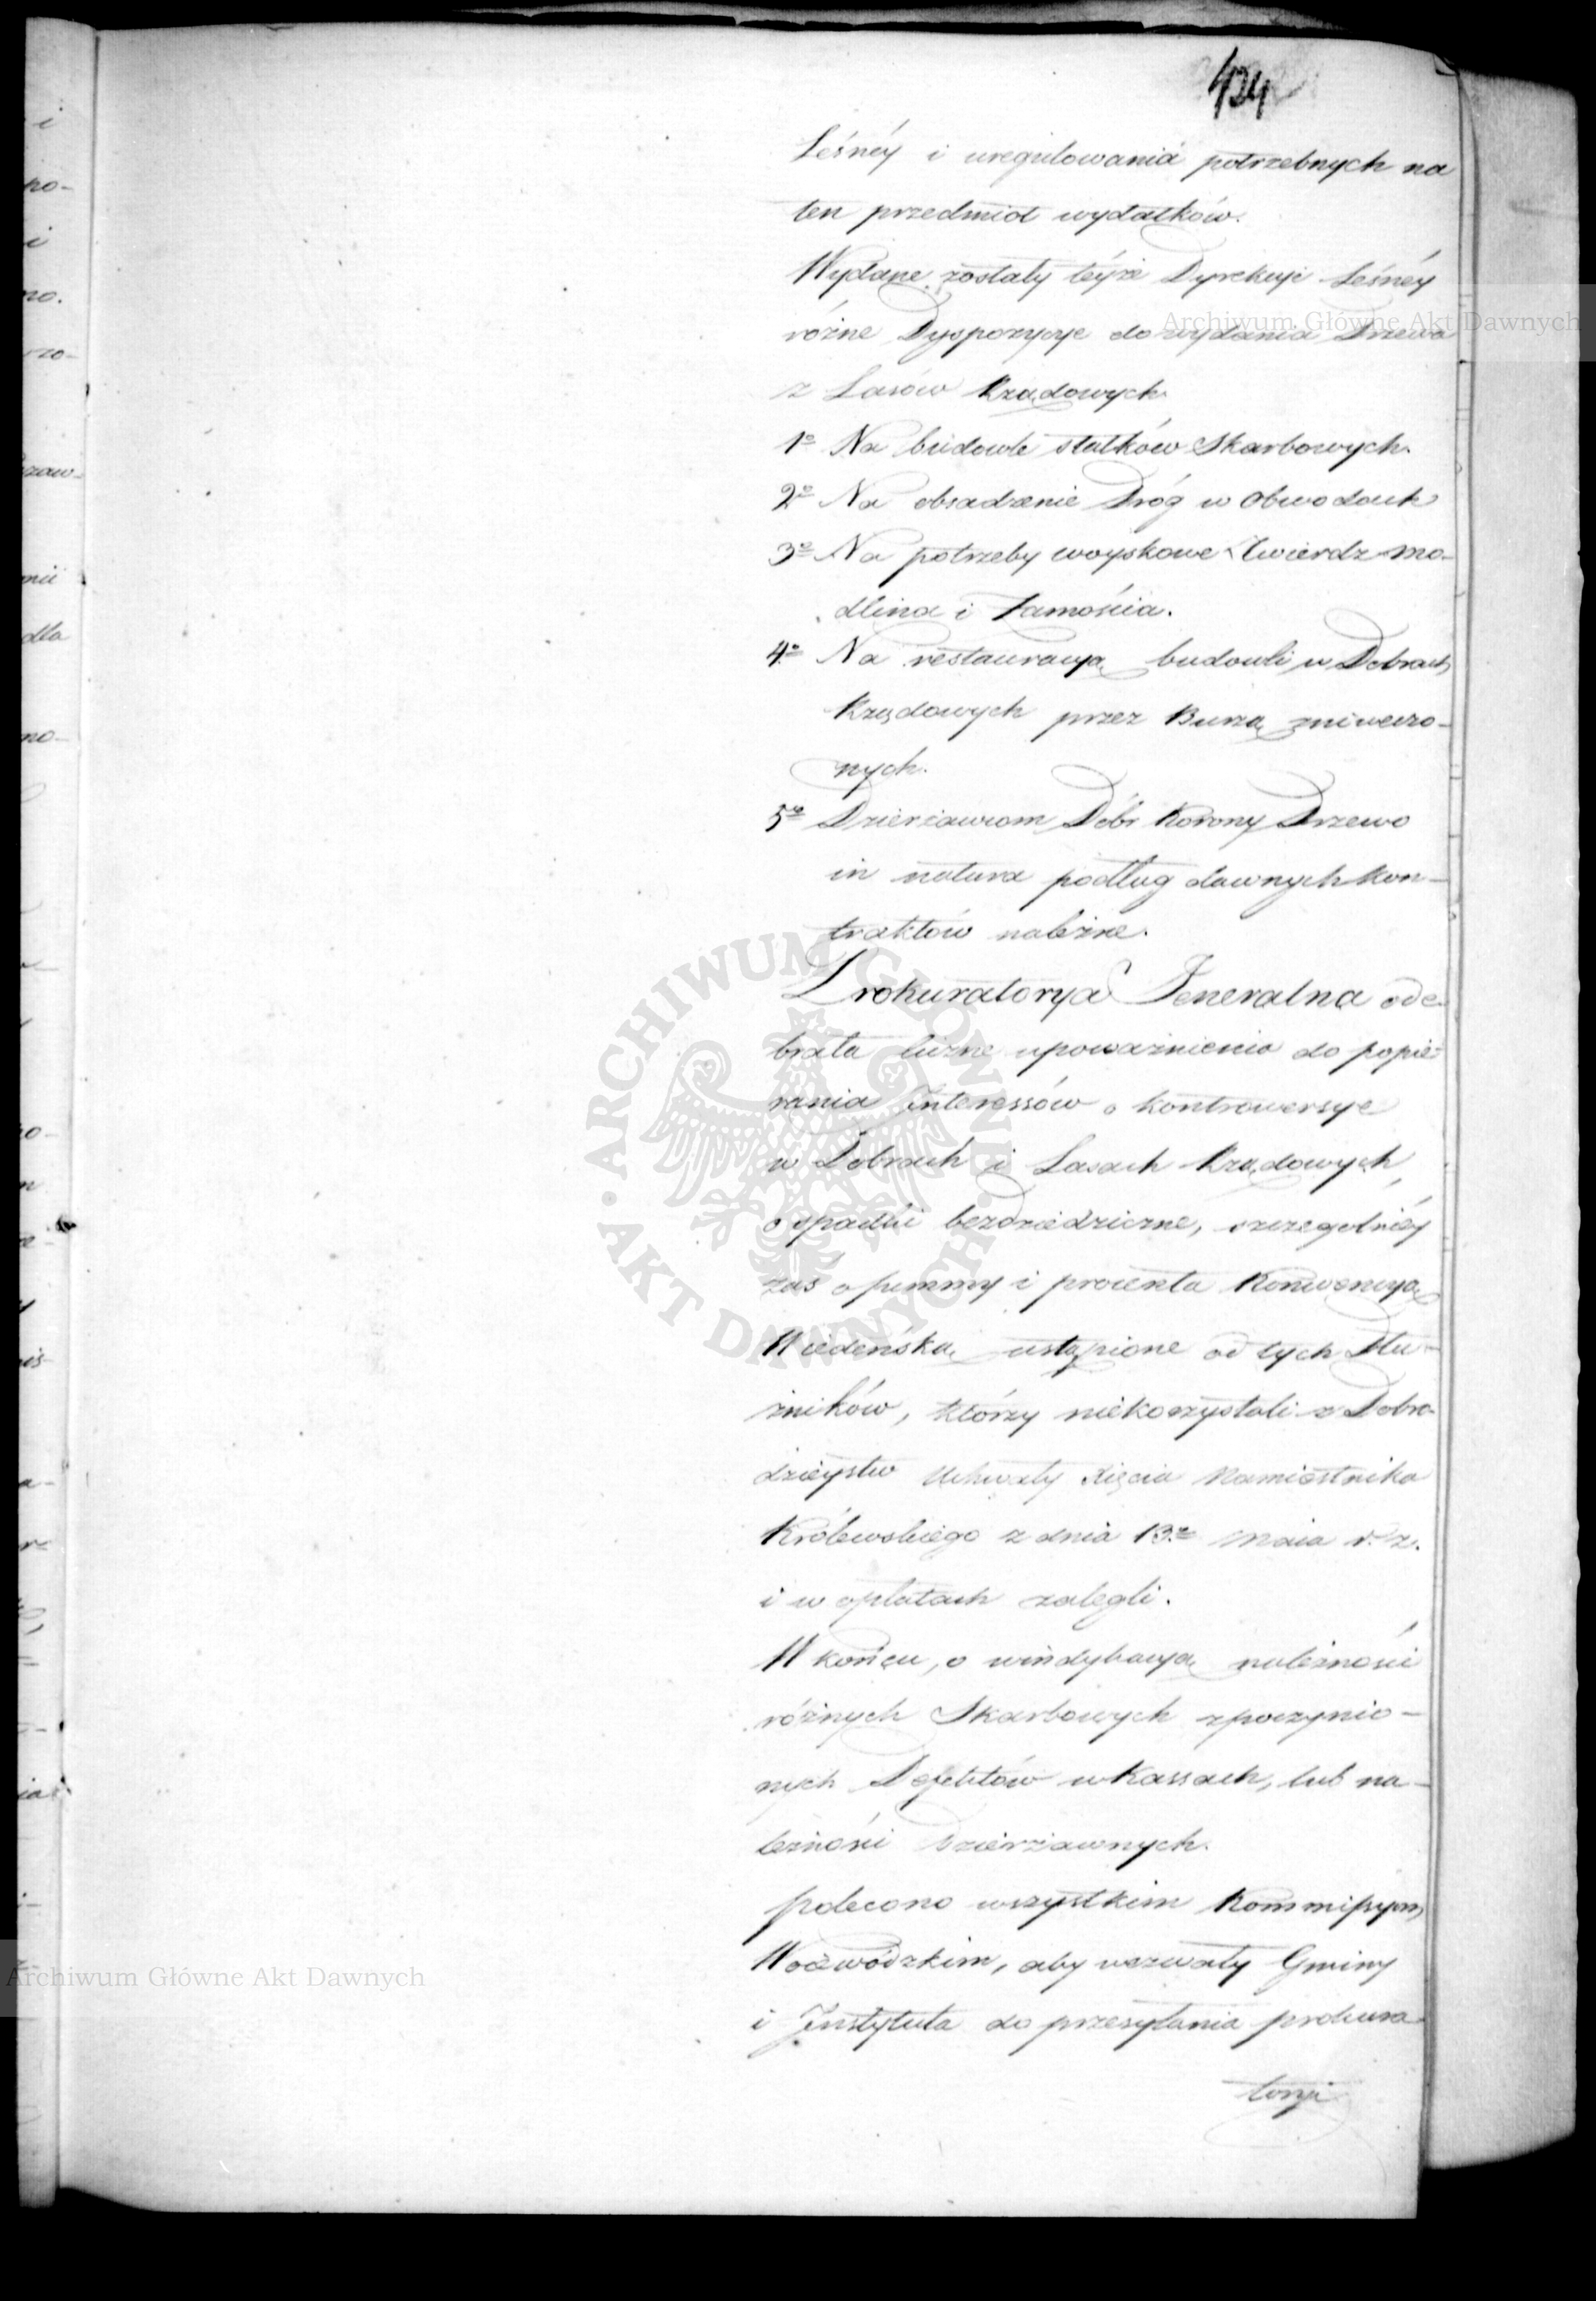 424
Leśnéy i uregulowania potrzebnych na
ten przedmiot wydatków.
Wydane zostały téyże Dyrekcyi Leśnéy
różne Dyspozycye do wydania Drzewa
z Lasów Rządowych.
1o Na budowle statków Skarbowych.
2o Na obsadzenie Dróg w Obwodach
3o Na potrzeby woyskowe Twierdz Mo-
dlina i Zamościa.
4o Na restauracyą budowli w Dobrach
Rządowych przez Burzą zniweczo-
nych.
5o Dzierżawcom Dóbr Korony Drzewo
in natura podług dawnych kon-
traktów należne.
Prokuratorya Jeneralna ode-
brała liczne upoważnienia do popie-
rania Interessów o kontrowersye
w Dobrach i Lasach Rządowych,
o spadki bezdziedziczne, szczególniéy
zaś o summy i procenta Konwencyą
Wiedeńską ustąpione od tych Dłu-
żników, którzy niekorzystali z Dobro-
dzieystw Uchwały Xięcia Namiestnika
Królewskiego z dnia 13o Maia r. z.
i w opłatach zalegli.
W końcu, o windykacyą należności
różnych Skarbowych z poczynio-
nych Defektów w Kassach, lub na-
leżności Dzierżawnych.
polecono wszystkim Kommissyom
Woiewódzkim, aby wezwały Gminy
i Instytuta do przesyłania prokura
toryi
Archiwum Główne Akt Dawnych
ARCHIWUM GŁÓWNE AKT DAWNYCH
Archiwum Główne Akt Dawnych